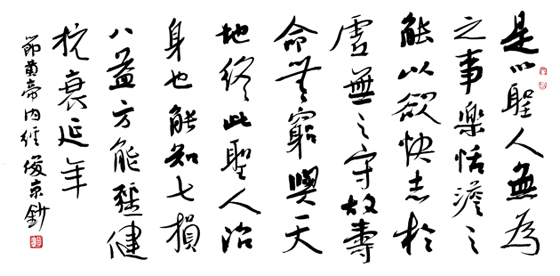 是以聖人無為
之事樂恬澹之
能以欲快志於
虛無之守故壽
命無窮與天
地終此聖人治
身也能知七損
八益方能健
抗衰延年
節黄帝内經俊京鈔